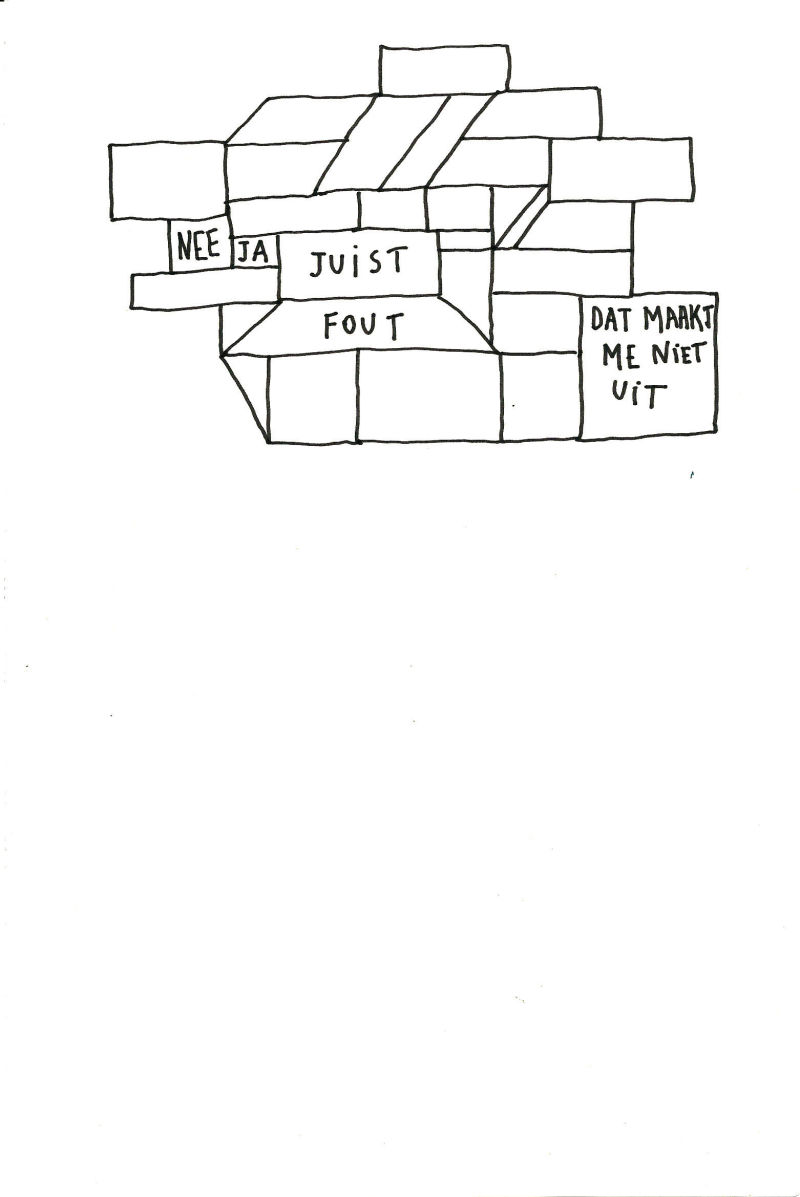 NEE
JA
JUiST
FOUT
DAT MAAKT
ME NiET
UiT